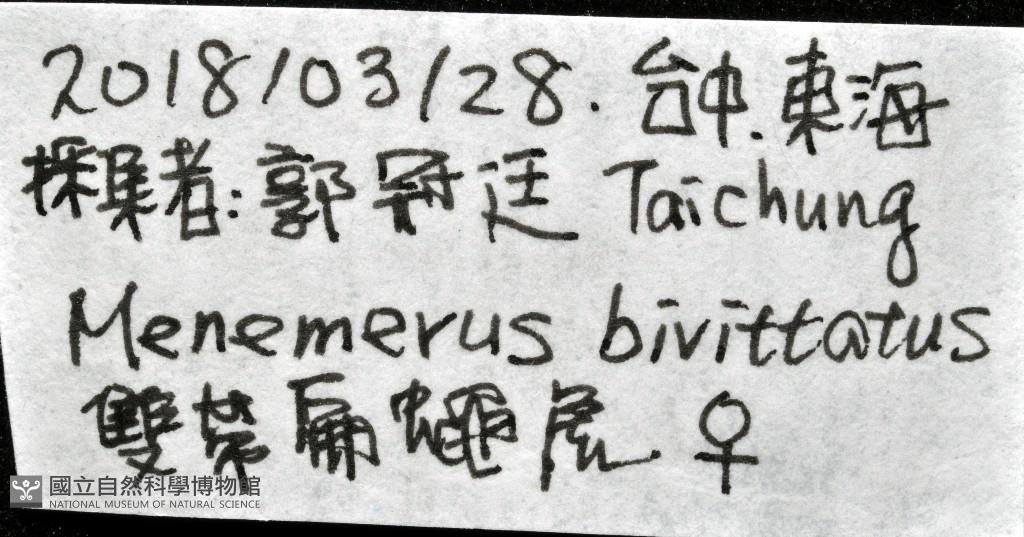 2018/03/28. 台中.東海
採集者:郭冠廷 Taichung
Menemerus bivittatus
雙帶扁蠅虎 ♀
國立自然科學博物館
NATIONAL MUSEUM OF NATURAL SCIENCE